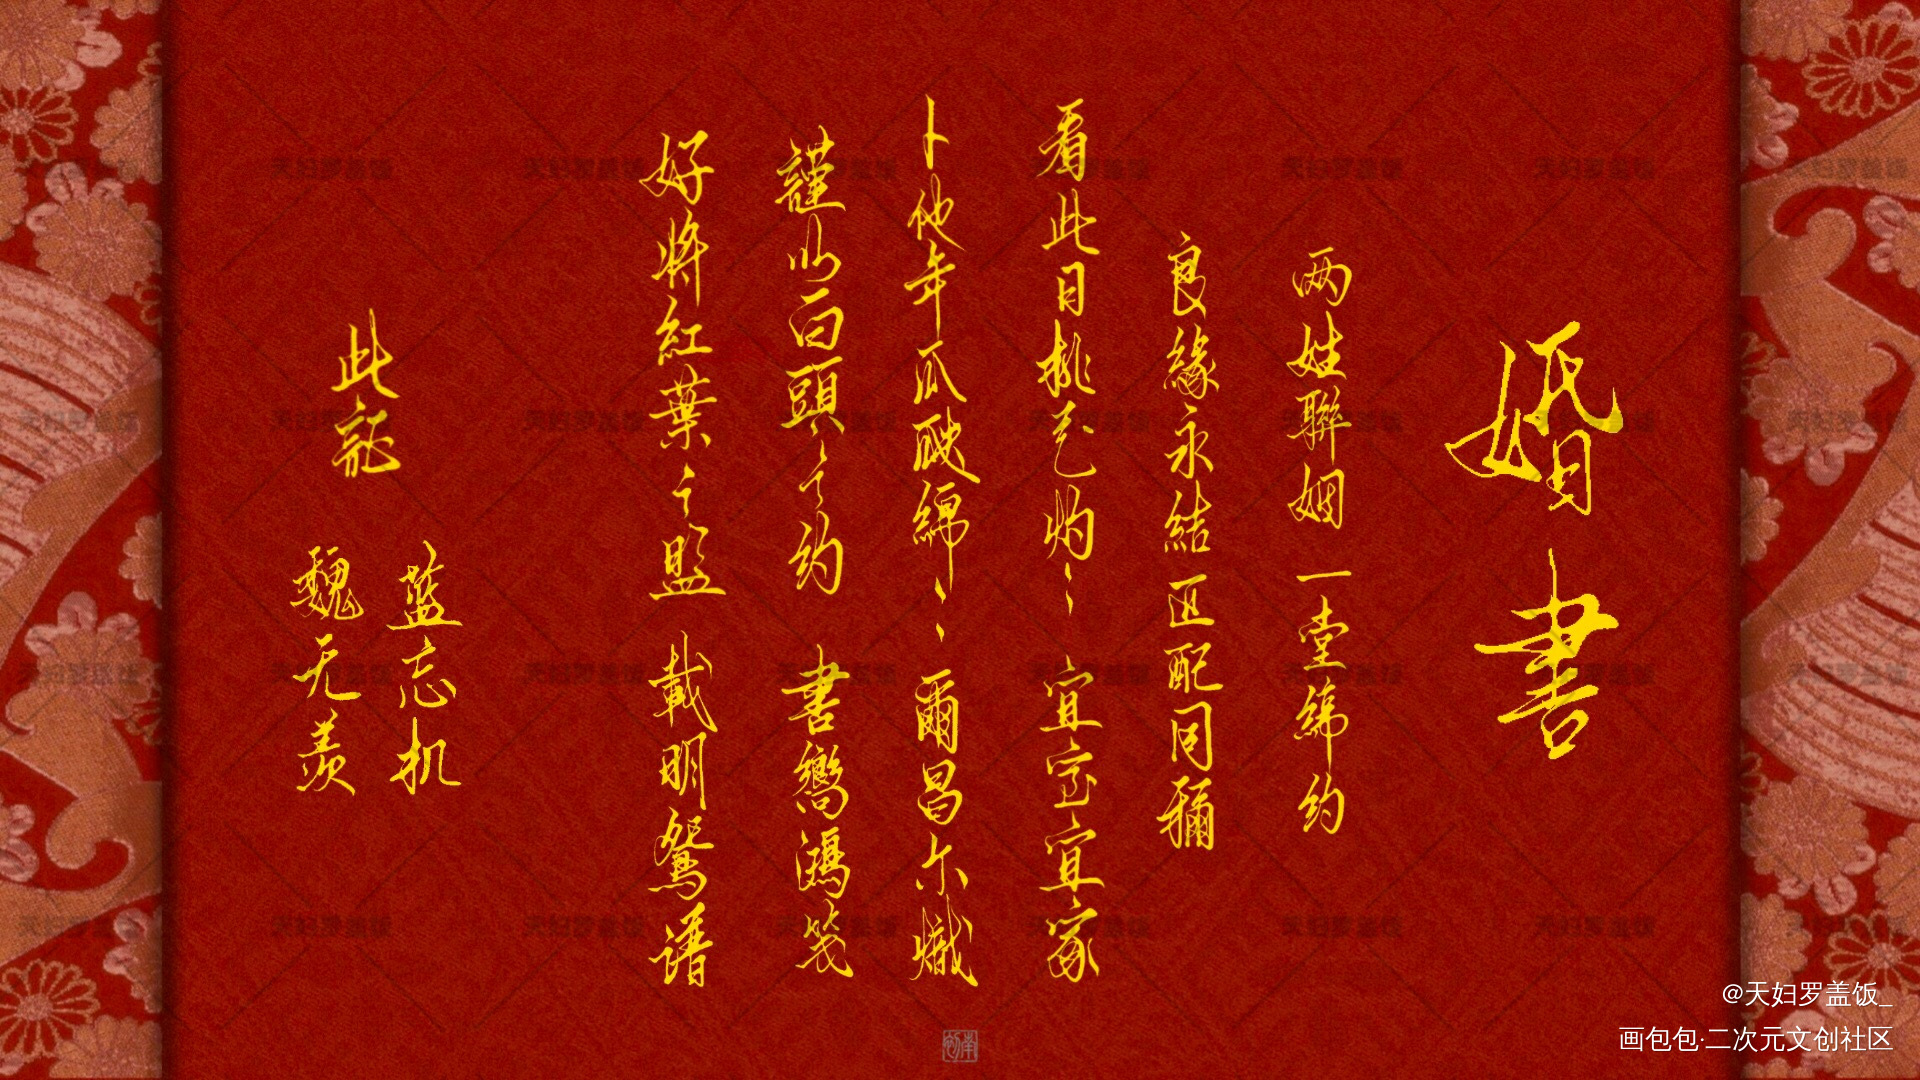 婚書
两姓聯姻 一堂締约
良緣永結 匹配同稱
看此日桃花灼灼 宜室宜家
卜他年瓜瓞綿綿 爾昌尔熾
謹以白頭之约 書向鴻笺
好將紅葉之盟 載明鴛谱
此証
蓝忘机
魏无羨
@天妇罗盖饭_
画包包·二次元文创社区